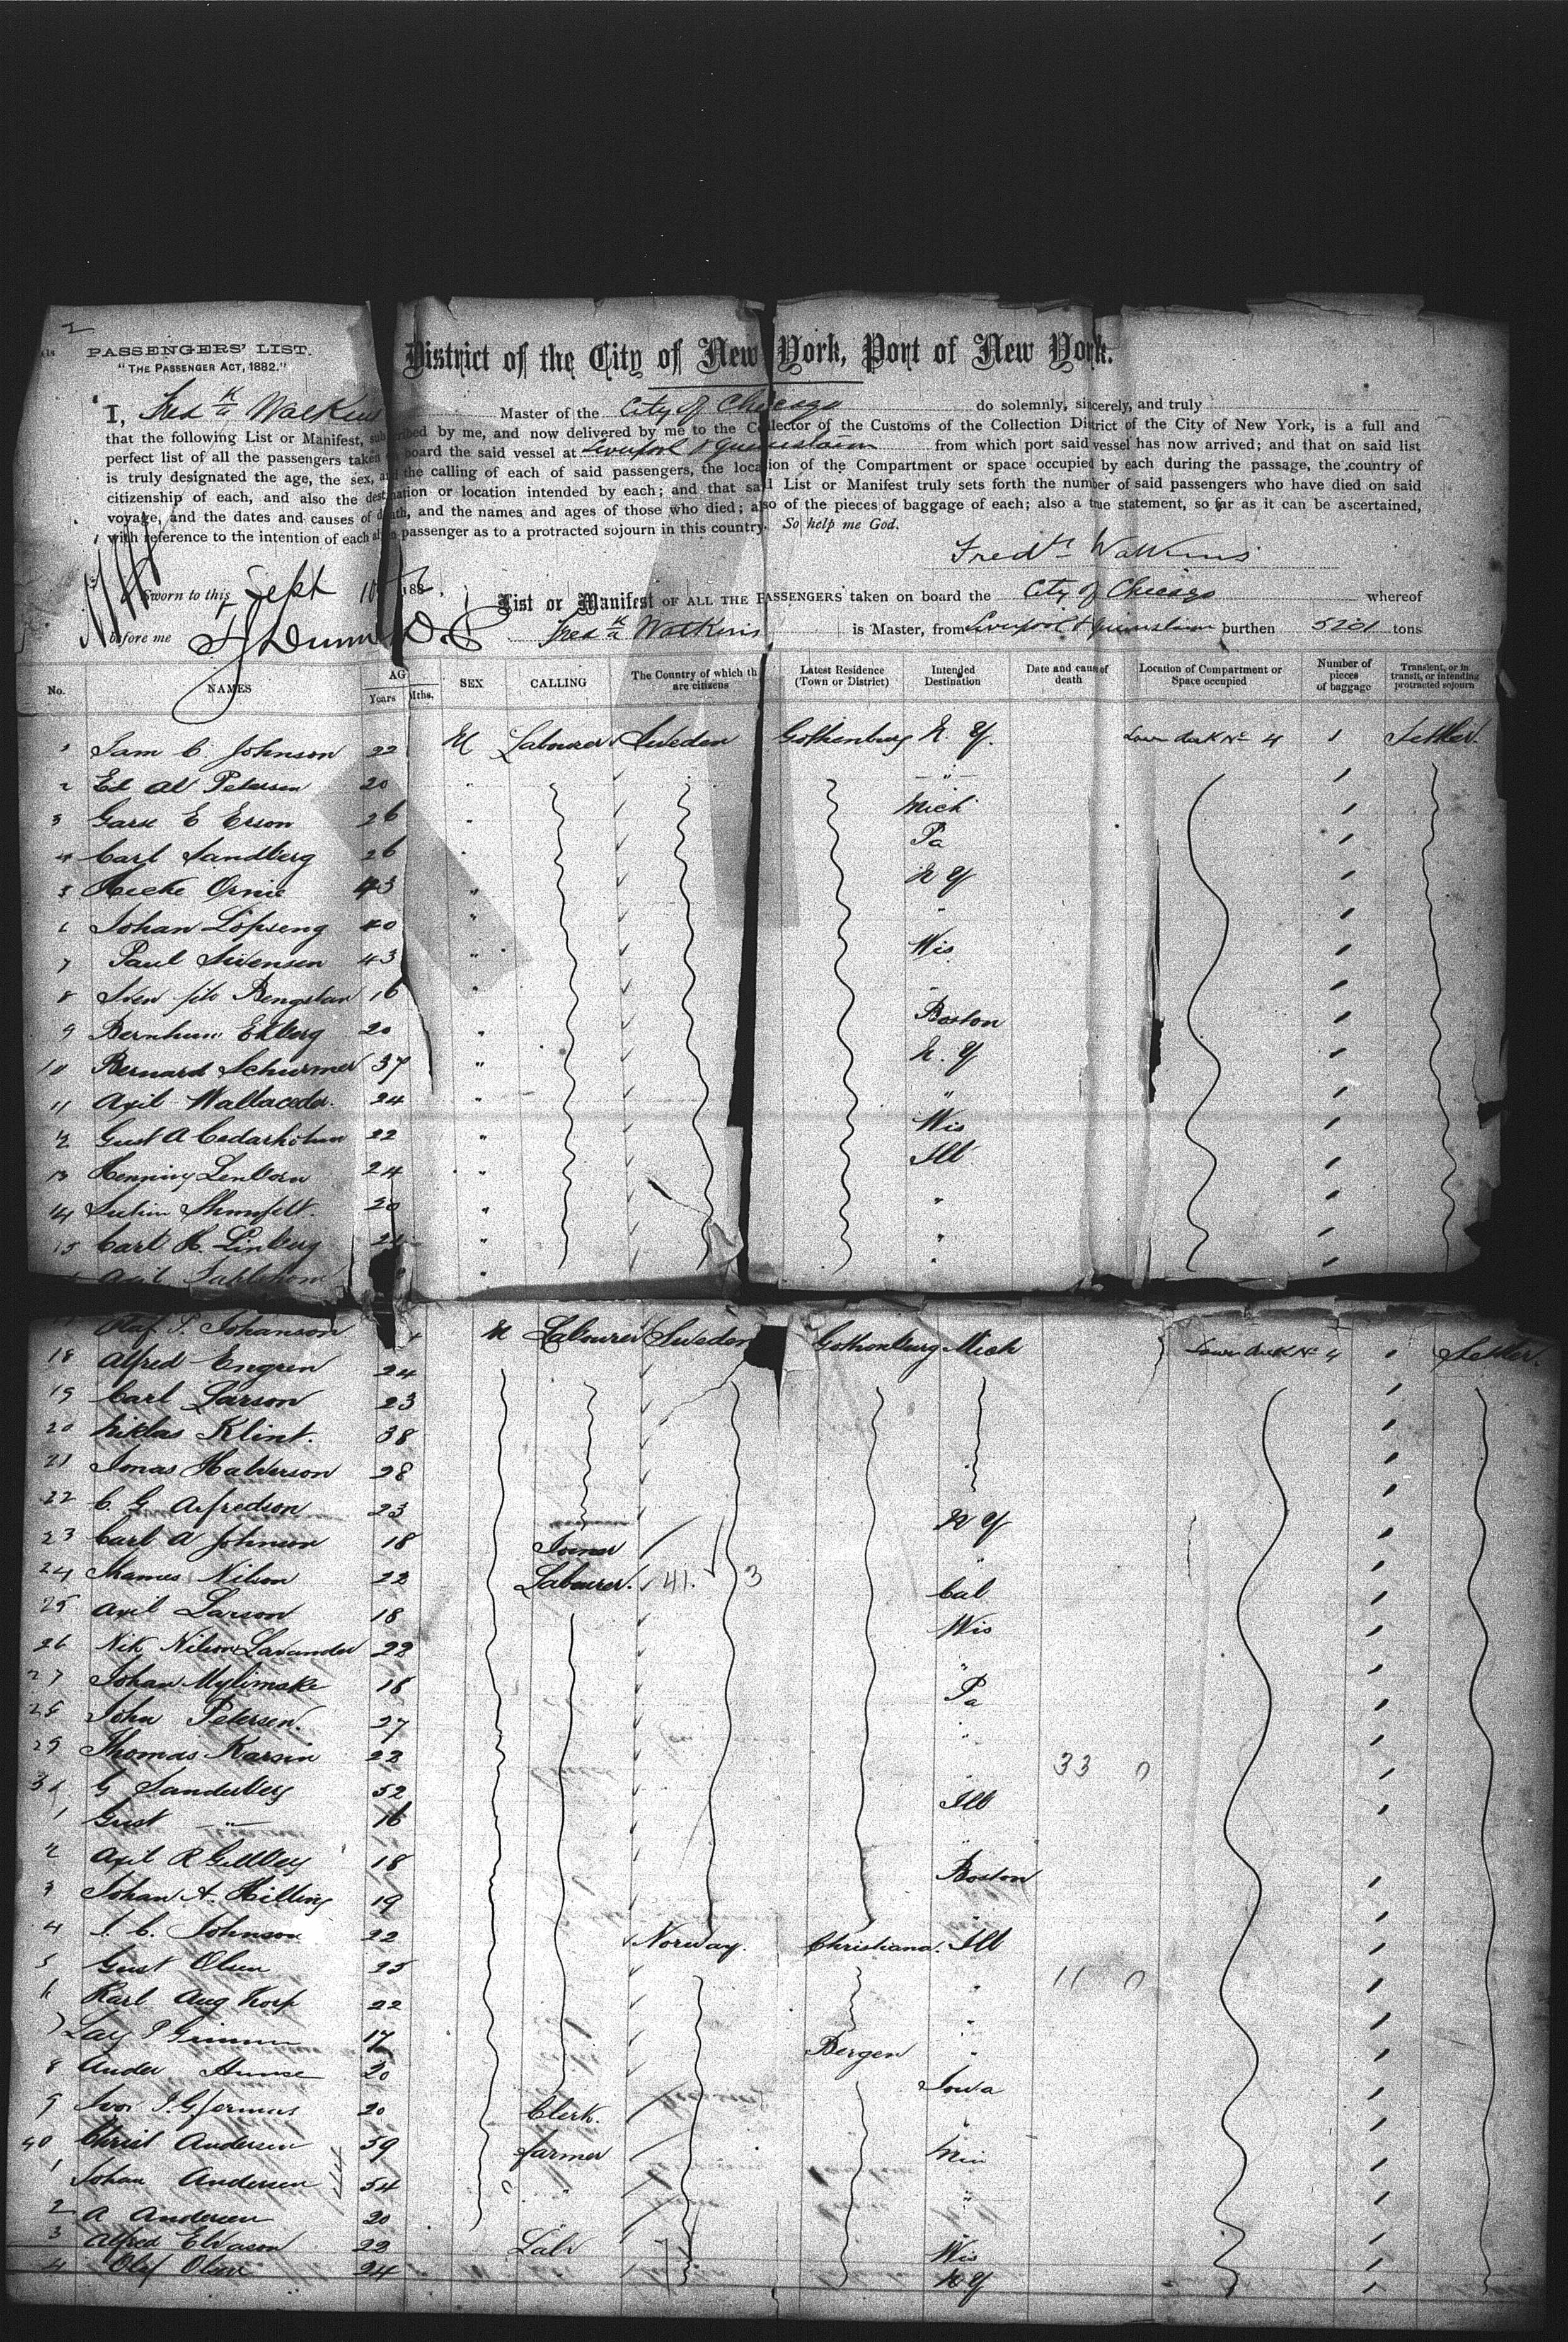 2
PASSENGERS' LIST.
"THE PASSENGER ACT, 1882."
District of the City of New York, Port of New York.
I, Fredk Watkins Master of the City of Chicago do solemnly, sincerely, and truly
that the following List or Manifest, subscribed by me, and now delivered by me to the Collector of the Customs of the Collection District of the City of New York, is a full and
perfect list of all the passengers taken on board the said vessel at Liverpool & Queenstown from which port said vessel has now arrived; and that on said list
is truly designated the age, the sex, and the calling of each of said passengers, the location of the Compartment or space occupied by each during the passage, the country of
citizenship of each, and also the destination or location intended by each; and that said List or Manifest truly sets forth the number of said passengers who have died on said
voyage, and the dates and causes of death, and the names and ages of those who died; also of the pieces of baggage of each; also a true statement, so far as it can be ascertained,
with reference to the intention of each alien passenger as to a protracted sojourn in this country. So help me God.
Fredk Watkins
Sworn to this Sept 10 188
List or Manifest OF ALL THE PASSENGERS taken on board the City of Chicago whereof
before me
Fredk Watkins is Master, from Liverpool & Queenstown burthen 5201 tons
No. NAMES AGE Years Mths. SEX CALLING The Country of which they are citizens Latest Residence (Town or District) Intended Destination Date and cause of death Location of Compartment or Space occupied Number of pieces of baggage Transient, or in transit, or intending protracted sojourn
1 Sam C Johnson 22 M Labourer Sweden Gothenburg N Y. Lower deck No 4 1 Settler.
2 Ed Al Petersen 20 " " 1
3 E Erson 26 " Mich 1
4 Carl Sandberg 26 " Pa 1
5 43 " N Y 1
6 Johan 40 " " 1
7 Paul Swensen 43 " Wis 1
8 Sven Bengstan 16 " " 1
9 Ekberg 20 " Boston 1
10 Bernard Schurmer 37 " N. Y 1
11 Axil 24 " " 1
12 Gust A Cedarholm 22 " Wis 1
13 Henning 24 " Ill 1
14 20 " " 1
15 Carl H. Linberg " " 1
Axil " 1
Olaf P. Johanson M Labourer Sweden Gothenburg Mich Lower deck No 4 1 Settler.
18 Alfred Engren 24 1
19 Carl Larson 23 1
20 Niklas Klint. 38 1
21 Jonas Halverson 28 1
22 C. G Alfredson 23 N Y 1
23 Carl A Johnson 18 Joiner " 1
24 Nilson 22 Labourer. 41. 3 Cal 1
25 Axil Larson 18 Wis 1
26 Nik Nilson Lavander 22 " 1
27 Johan 18 Pa 1
28 John Petersen. 27 " 1
29 Thomas 22 " 33 0 1
G Sanderberg 52 Ill 1
1 Gust " 16 "
2 Axil R 18 Boston 1
3 Johan A. Hilling 19 " 1
4 J. C. Johnson 22 Norway. Christiana. Ill 1
5 Gust Olsen 25 " 11 0 1
6 Karl Aug 22 " 1
7 17 Bergen " 1
8 Ander 20 Iowa 1
9 20 Clerk. " 1
40 Christ Andersen 59 farmer Min 1
1 Johan Andersen 54 " " 1
2 A Andersen 20
3 Alfred 22 Labr Wis 1
4 Olof Olsen 24 N Y 1